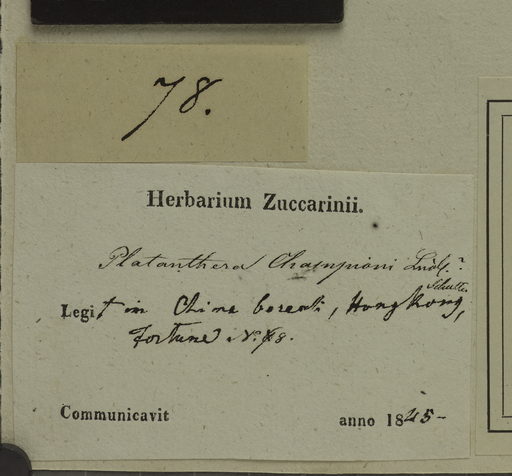 78.
Herbarium Zuccarinii.
Platanthera Championi Lindl.?
Legit in China boreali, Hongkong,
Fortune No. 78.
Communicavit anno 1845-